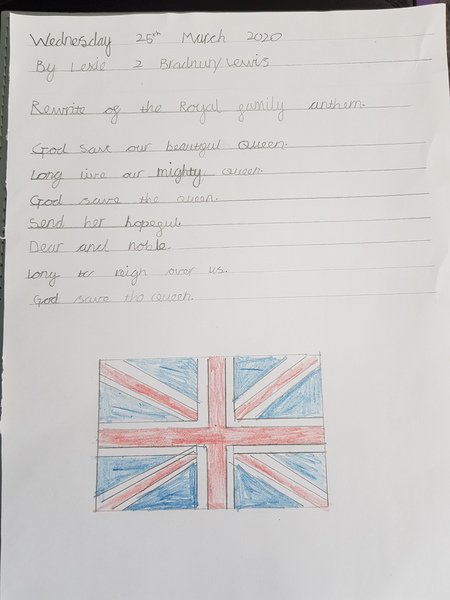 Wednesday 25th March 2020
By Lexie 2 Bradnum/Lewis
Rewrite of the Royal family anthem.
God save our beautiful Queen.
Long live our mighty Queen.
God save the queen.
Send her hopeful.
Dear and noble.
Long to reigh over us.
God save the Queen.